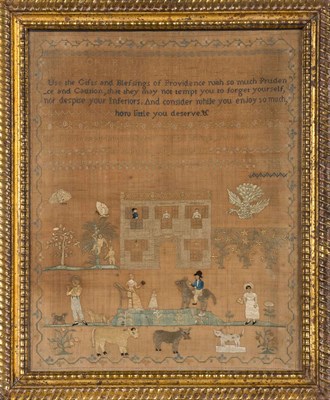 Use the Gifts and Blessings of Providence with so much Pruden
ce and Caution, that they may not tempt you to forget yourself,
nor despise your Inferiors: And consider while you enjoy so much
how little you deserve.